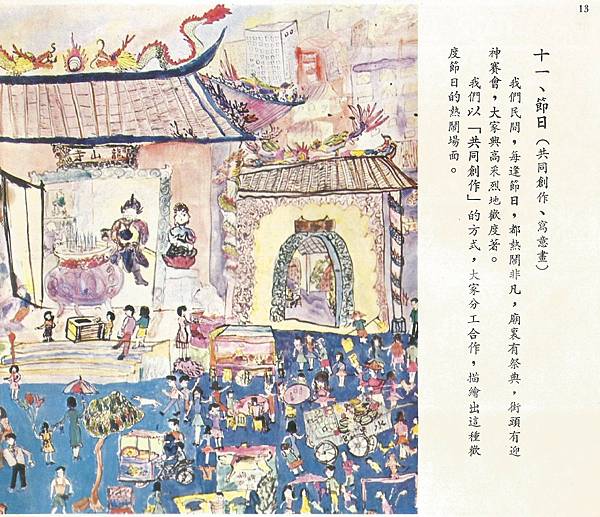 13
十一、節日（共同創作、寫意畫）
我們民間，每逢節日，都熱鬧非凡，廟裏有祭典，街頭有迎
神賽會，大家興高采烈地歡度著。
我們以「共同創作」的方式，大家分工合作，描繪出這種歡
度節日的熱鬧場面。
寺山龍